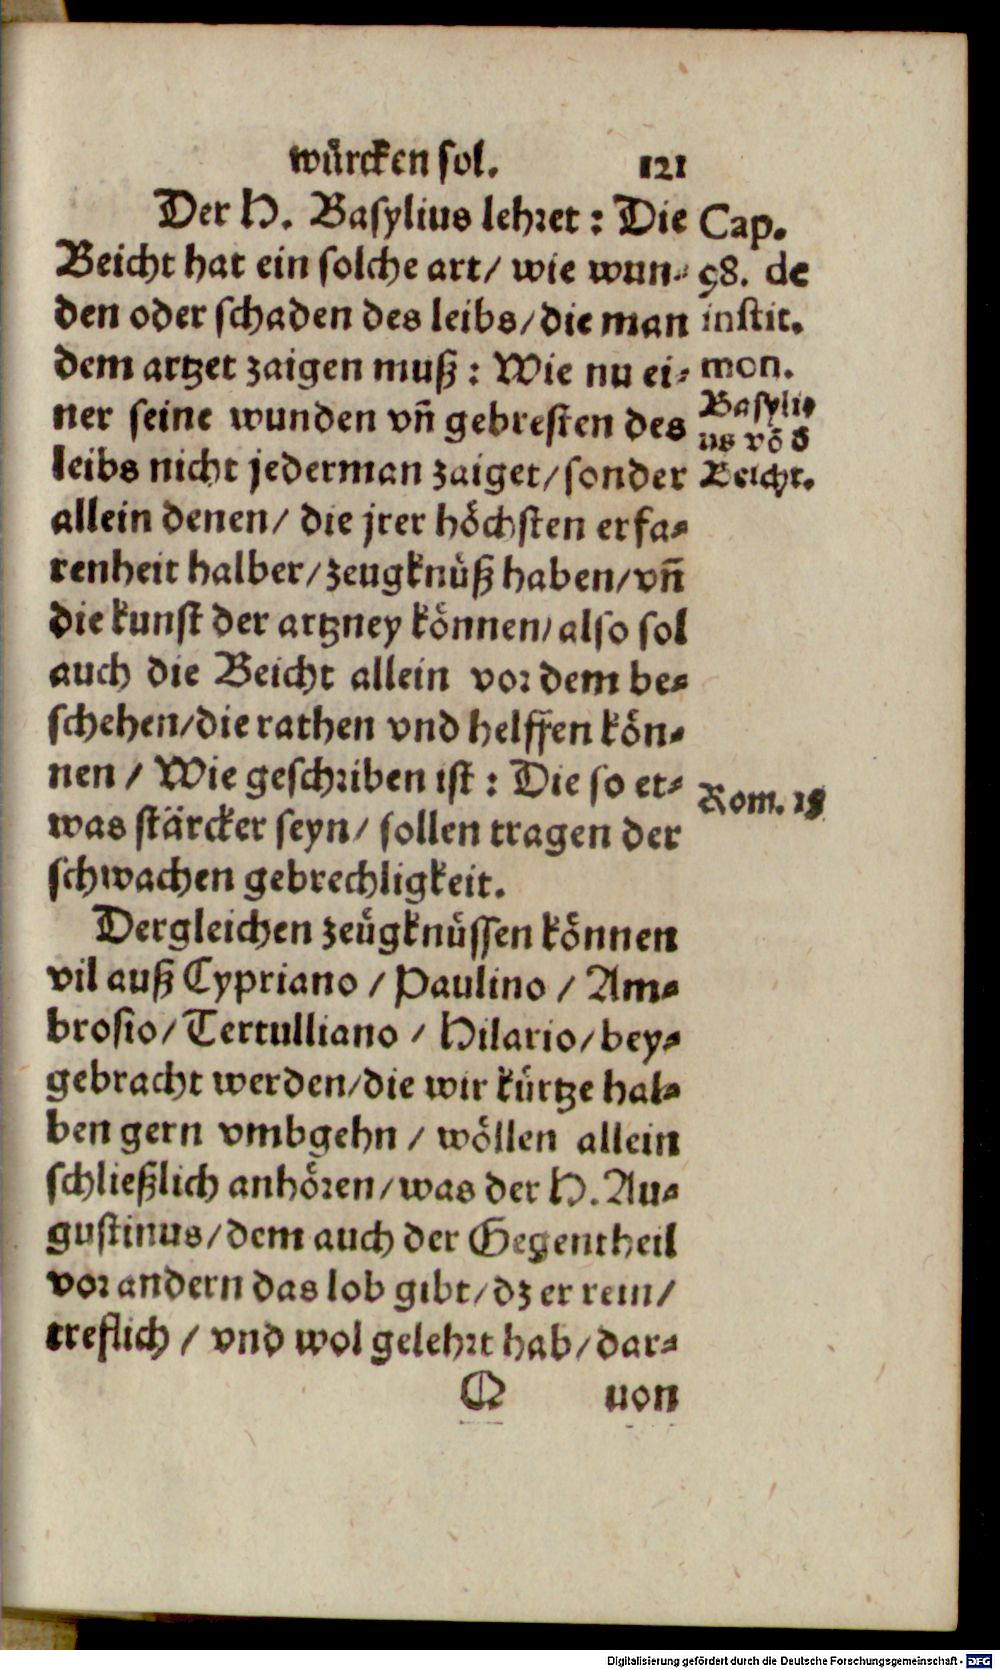 wuͤrcken sol. 121
Der H. Basylius lehret: Die
Beicht hat ein solche art/ wie wun-
den oder schaden des leibs/die man
dem artzet zaigen muß: Wie nu ei-
ner seine wunden vñ gebresten des
leibs nicht jederman zaiget/sonder
allein denen/ die jrer hoͤchsten erfa-
renheit halber/zeugknuͤß haben/vñ
die kunst der artzney koͤnnen/also sol
auch die Beicht allein vor dem be-
schehen/die rathen vnd helffen koͤn-
nen / Wie geschriben ist: Die so et-
was staͤrcker seyn/ sollen tragen der
schwachen gebrechligkeit.
Dergleichen zeuͤgknuͤssen koͤnnen
vil auß Cypriano / Paulino / Am-
brosio/ Tertulliano / Hilario/bey-
gebracht werden/die wir kuͤrtze hal-
ben gern vmbgehn / woͤllen allein
schließlich anhoͤren/was der H. Au-
gustinus/dem auch der Gegentheil
vor andern das lob gibt/dz er rein/
treflich / vnd wol gelehrt hab/dar-
Q uon
Cap.
98. de
instit.
mon.
Basyli-
us võ d
Beicht.
Rom. 15
Digitalisierung gefördert durch die Deutsche Forschungsgemeinschaft - DFG